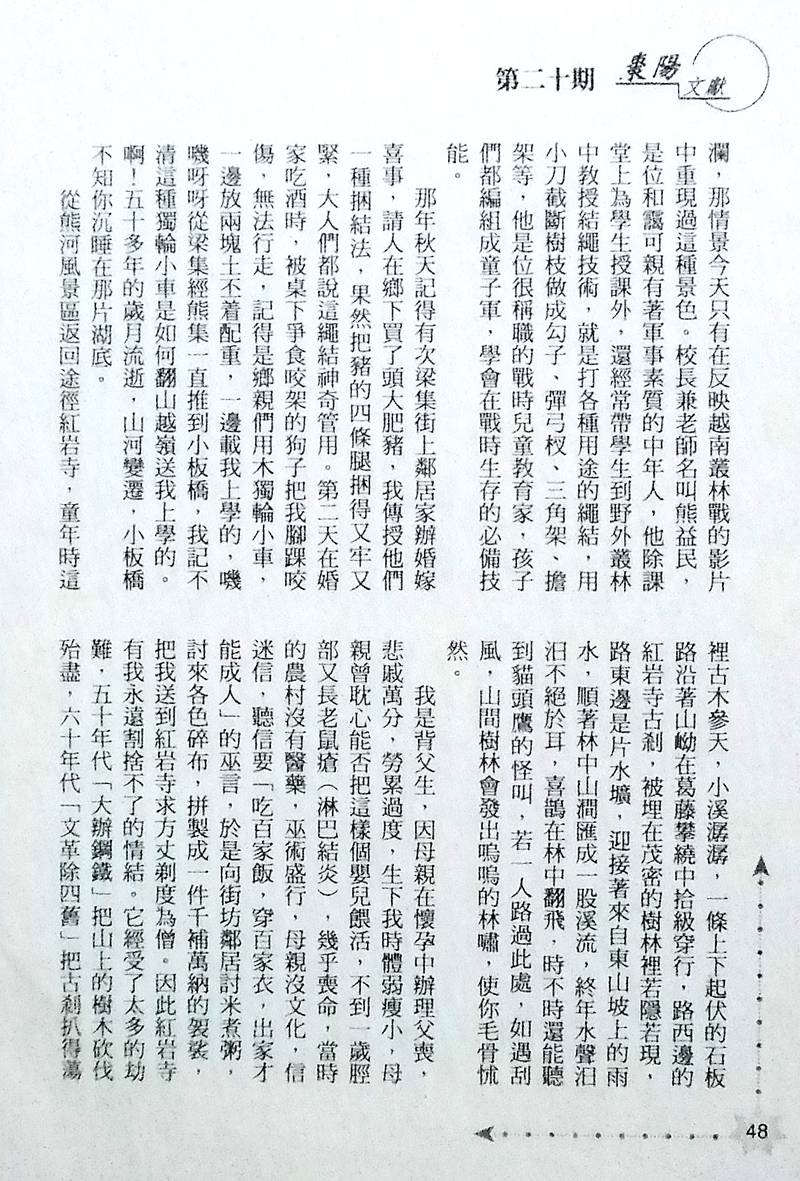 第二十期
棗陽
文獻
瀾，那情景今天只有在反映越南叢林戰的影片
中重現過這種景色。校長兼老師名叫熊益民，
是位和靄可親有著軍事素質的中年人，他除課
堂上為學生授課外，還經常帶學生到野外叢林
中教授結繩技術，就是打各種用途的繩結，用
小刀截斷樹枝做成勾子、彈弓杈、三角架、擔
架等，他是位很稱職的戰時兒童教育家，孩子
們都編組成童子軍，學會在戰時生存的必備技
能。
那年秋天記得有次梁集街上鄰居家辦婚嫁
喜事，請人在鄉下買了頭大肥豬，我傳授他們
一種捆結法，果然把豬的四條腿捆得又牢又
緊，大人們都說這繩結神奇管用。第二天在婚
家吃酒時，被桌下爭食咬架的狗子把我腳踝咬
傷，無法行走，記得是鄉親們用木獨輪小車，
一邊放兩塊土不着配重，一邊載我上學的，嘰
嘰呀呀從梁集經熊集一直推到小板橋，我記不
清這種獨輪小車是如何翻山越嶺送我上學的。
啊！五十多年的歲月流逝，山河變遷，小板橋
不知你沉睡在那片湖底。
從熊河風景區返回途徑紅岩寺，童年時這
裡古木參天，小溪潺潺，一條上下起伏的石板
路沿著山岰在葛藤攀繞中拾級穿行，路西邊的
紅岩寺古剎，被埋在茂密的樹林裡若隱若現，
路東邊是片水壙，迎接著來自東山坡上的雨
水，順著林中山澗匯成一股溪流，終年水聲汩
汩不絕於耳，喜鵲在林中翻飛，時不時還能聽
到貓頭鷹的怪叫，若一人路過此處，如遇刮
風，山間樹林會發出嗚嗚的林嘯，使你毛骨怵
然。
我是背父生，因母親在懷孕中辦理父喪，
悲戚萬分，勞累過度，生下我時體弱瘦小，母
親曾耽心能否把這樣個嬰兒餵活，不到一歲脛
部又長老鼠瘡（淋巴結炎），幾乎喪命，當時
的農村沒有醫藥，巫術盛行，母親沒文化，信
迷信，聽信要「吃百家飯，穿百家衣，出家才
能成人」的巫言，於是向街坊鄰居討米煮粥，
討來各色碎布，拼製成一件千補萬納的袈裟，
把我送到紅岩寺求方丈剃度為僧。因此紅岩寺
有我永遠割捨不了的情結。它經受了太多的劫
難，五十年代「大辦鋼鐵」把山上的樹木砍伐
殆盡，六十年代「文革除四舊」把古剎扒得蕩
48